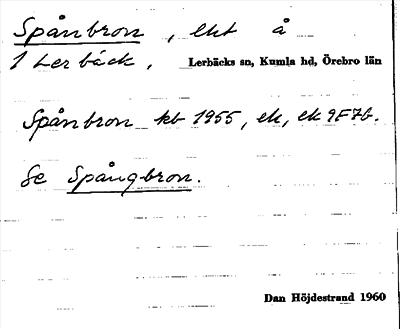 Spånbron, ekt å
1 Lerbäck, Lerbäcks sn, Kumla hd, Örebro län
Spånbron kb 1955, ek, ek 9F7b.
Se Spångbron.
Dan Höjdestrand 1960